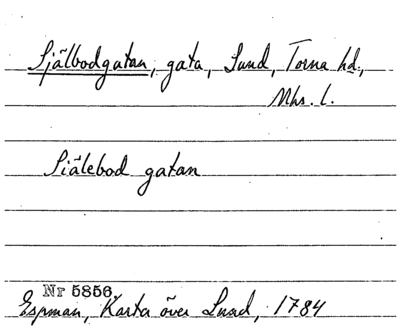 Själbodgatan, gata, Lund, Torna hd.,
Mhs. l.
Siälebod gatan
Nr 5856.
Espman, Karta över Lund, 1784